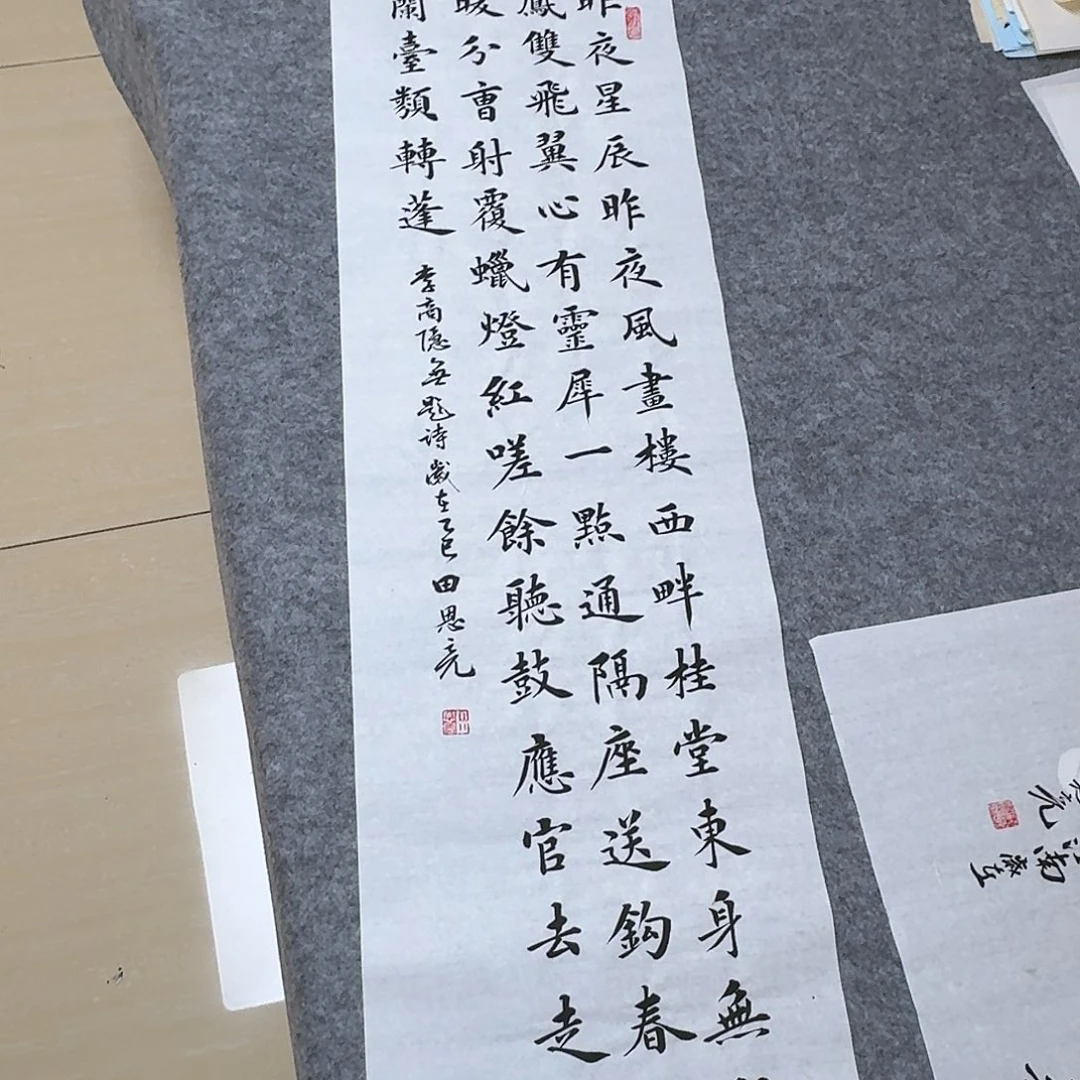 昨夜星辰昨夜風畫樓西畔桂堂東身無
鳳雙飛翼心有靈犀一點通隔座送鈎春
暖分曺射覆蠟燈紅嗟餘聽鼓應官去走
蘭臺類轉蓬
李商隱無題詩歲在乙巳田恩亮
江南歲在
亮